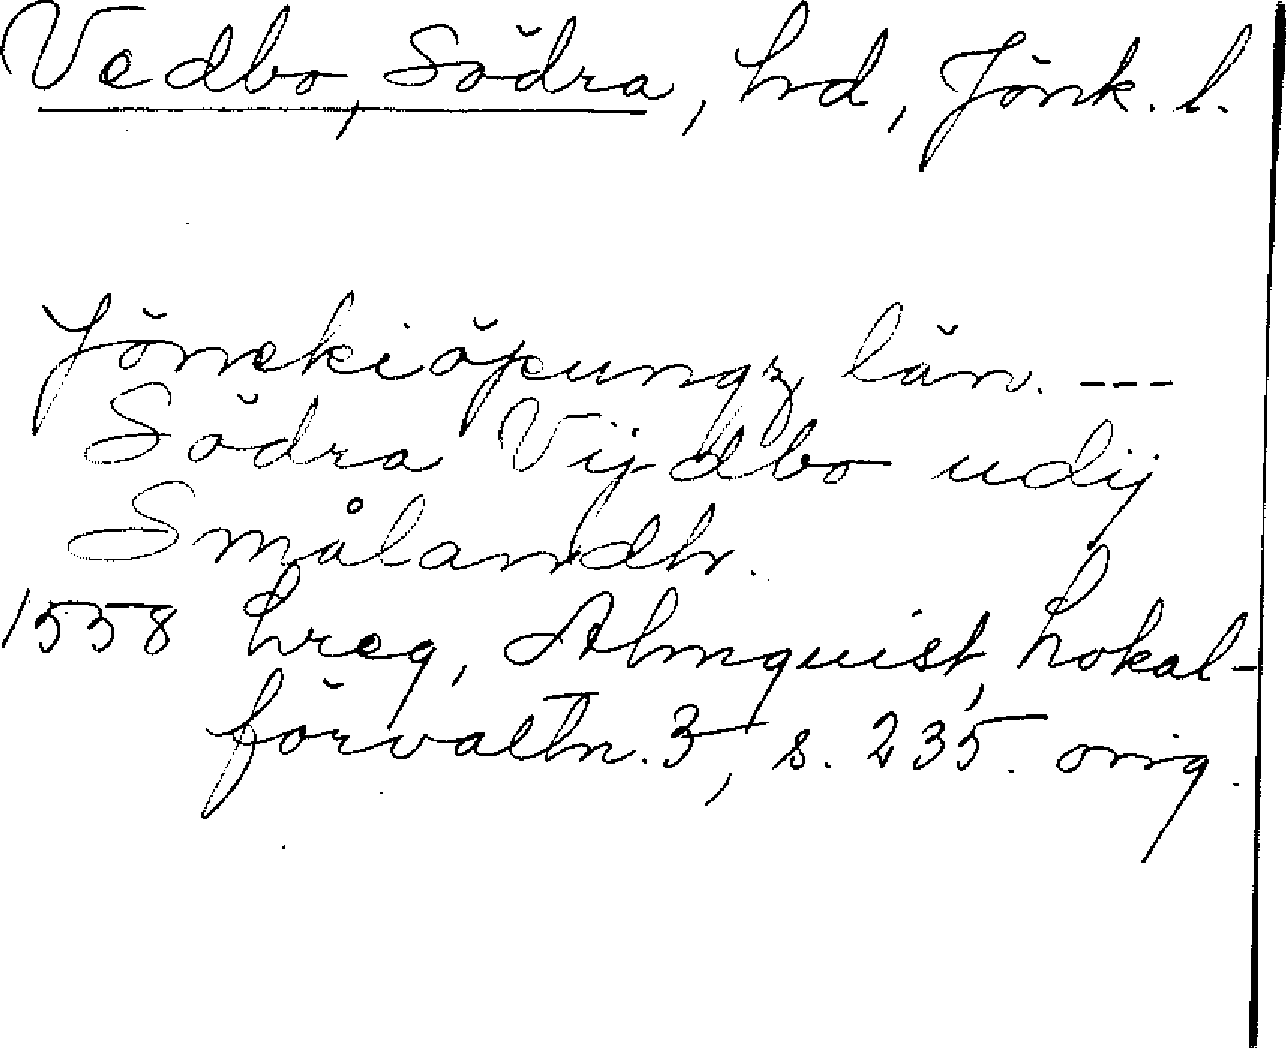 Vedbo, Södra, hd, Jönk. l.
Jönekiöpungz län. ---
Södra Vijdbo udij
Smålandh.
1558 Lreg, Almquist, Lokal-
förvaltn. 3, s. 235. orig.